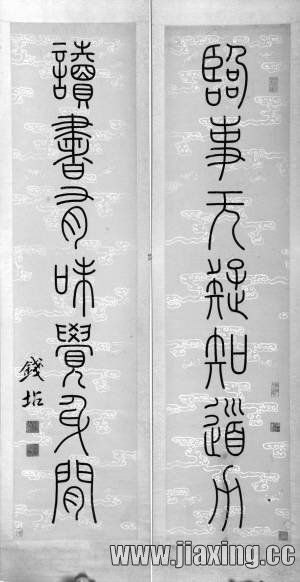 臨事无疑知道力
讀書有味覺身閒
錢坫
www.jiaxing.cc